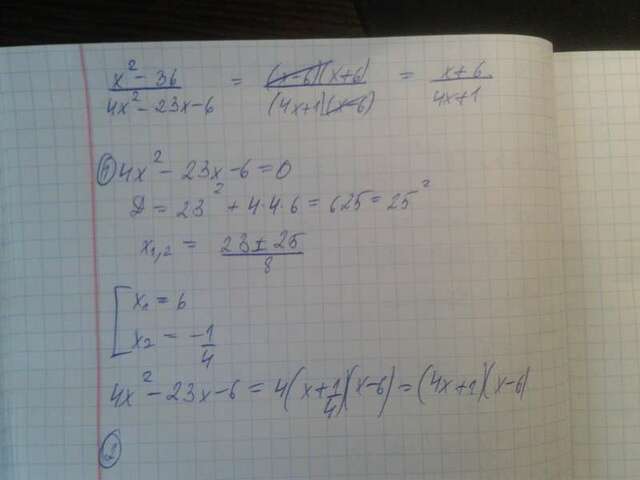 (x² - 36)/(4x² - 23x - 6) = ((x-6)(x+6))/((4x+1)(x-6)) = (x+6)/(4x+1)
① 4x² - 23x - 6 = 0
D = 23² + 4·4·6 = 625 = 25²
x₁,₂ = (23 ± 25)/8
[ x₁ = 6
x₂ = -1/4
4x² - 23x - 6 = 4(x + 1/4)(x-6) = (4x+1)(x-6)
②